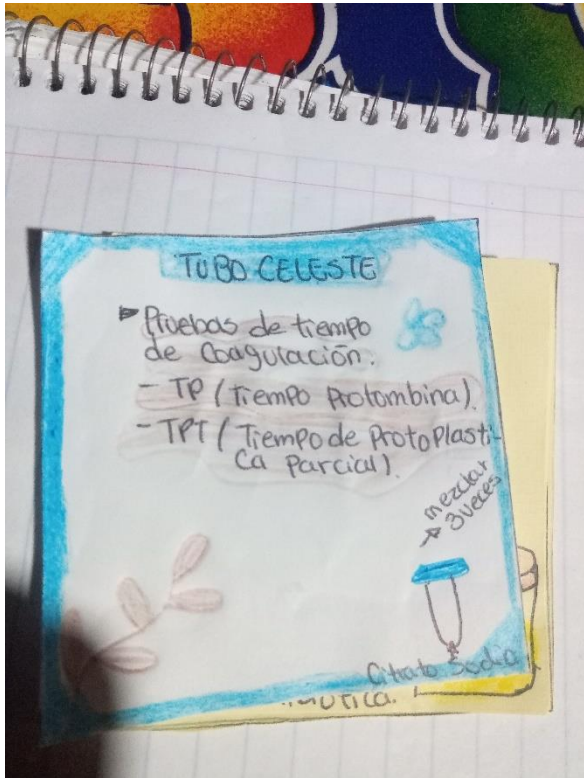 TUBO CELESTE
Pruebas de tiempo
de Coagulación.
- TP (Tiempo Protombina).
- TPT (Tiempo de ProtoPlasti-
ca Parcial).
mezclar
3 veces
Citrato Sodio